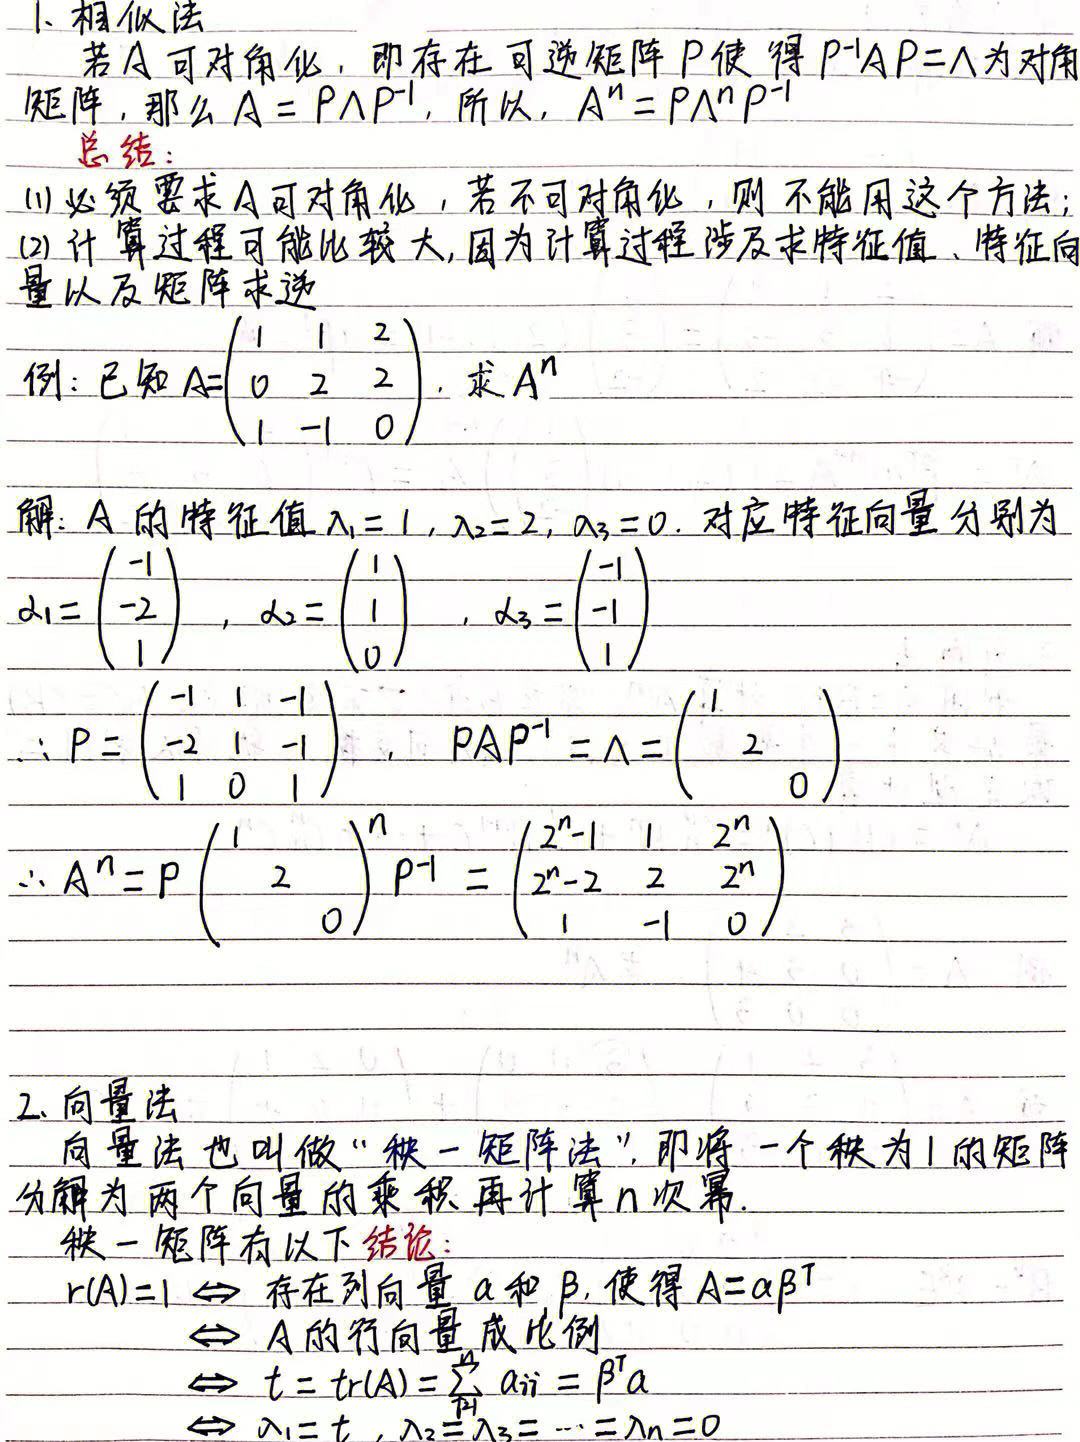 1、相似法
若A可对角化，即存在可逆矩阵P使得P⁻¹AP=Λ为对角
矩阵，那么A=PΛP⁻¹，所以，Aⁿ=PΛⁿP⁻¹
总结：
(1)必须要求A可对角化，若不可对角化，则不能用这个方法；
(2)计算过程可能比较大，因为计算过程涉及求特征值、特征向
量以及矩阵求逆
例：已知A=(1 1 2; 0 2 2; 1 -1 0)，求Aⁿ
解：A的特征值λ₁=1，λ₂=2，λ₃=0．对应特征向量分别为
α₁=(-1; -2; 1)，α₂=(1; 1; 0)，α₃=(-1; -1; 1)
∴P=(-1 1 -1; -2 1 -1; 1 0 1)，PAP⁻¹=Λ=(1 2 0)
∴Aⁿ=P(1 2 0)ⁿP⁻¹=(2ⁿ-1 1 2ⁿ; 2ⁿ-2 2 2ⁿ; 1 -1 0)
2、向量法
向量法也叫做“秩一矩阵法”，即将一个秩为1的矩阵
分解为两个向量的乘积再计算n次幂．
秩一矩阵有以下结论：
r(A)=1 ⇔ 存在列向量α和β，使得A=αβᵀ
⇔ A的行向量成比例
⇔ t=tr(A)=∑ⁿᵢ₌₁aᵢᵢ=βᵀα
⇔ λ₁=t，λ₂=λ₃=⋯=λₙ=0